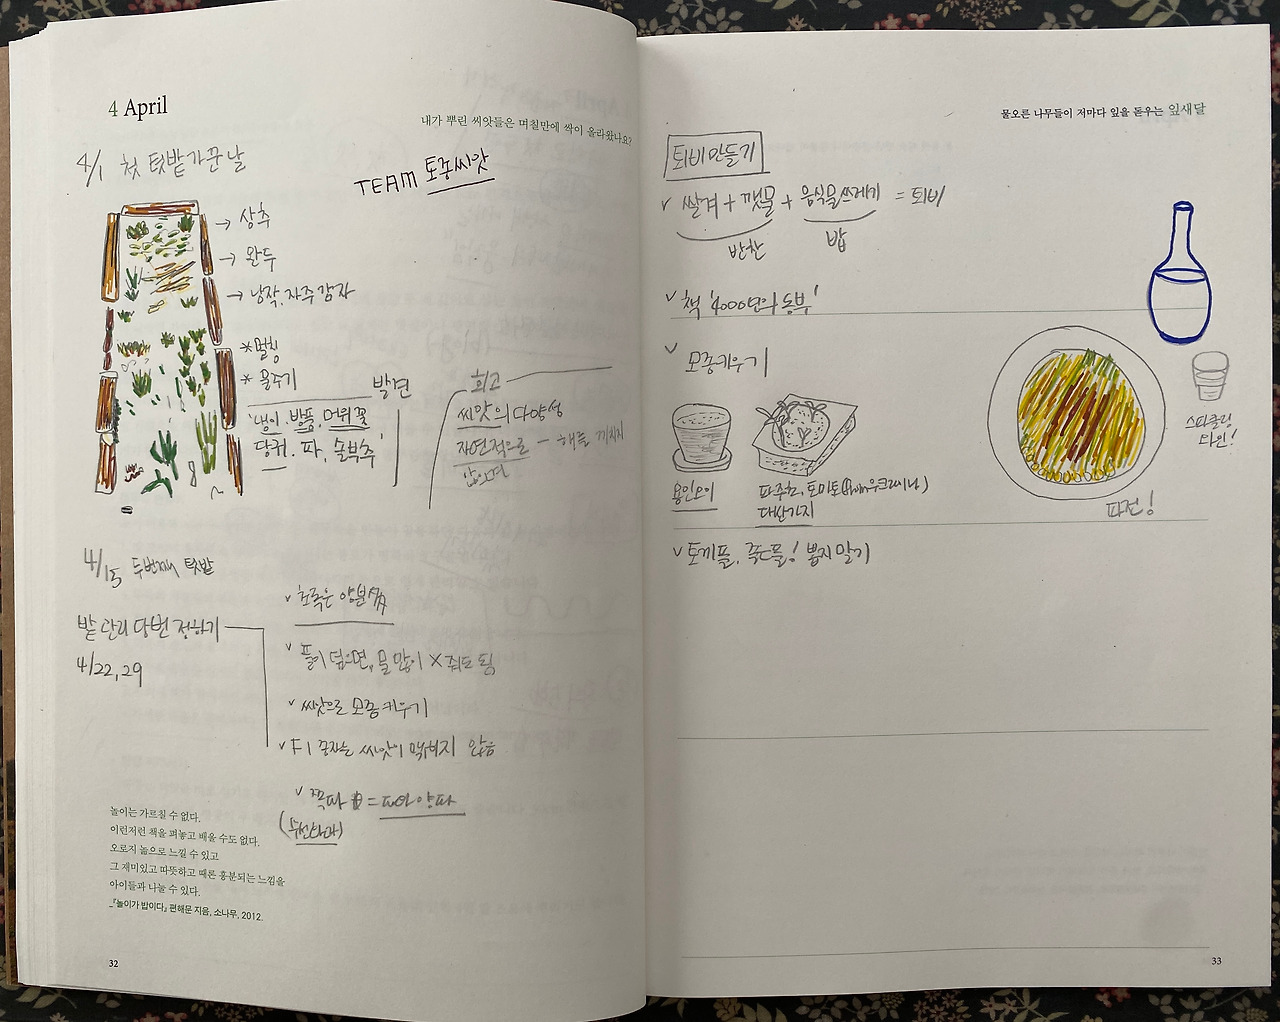 4 April
내가 뿌린 씨앗들은 며칠만에 싹이 올라왔나요?
4/1 첫 텃밭 가꾼 날
TEAM 토종씨앗
→ 상추
→ 완두
→ 낭작, 자주감자
* 멀칭
* 물주기
발견
냉이, 방풍, 머위꽃
당귀, 파, 솔부추
회고
씨앗의 다양성
자연적으로 - 해를 끼치지
않으면
4/15 두번째 텃밭
밭 관리 당번 정하기
4/22, 29
v 초록은 양분
v 풀이 덮으면, 물 많이 X 줘도 됨
v 씨앗으로 모종키우기
v F1 종자는 씨앗이 맺히지 않음
v 쪽파 = 파와 양파
놀이는 가르칠 수 없다.
이런저런 책을 펴놓고 배울 수도 없다.
오로지 놂으로 느낄 수 있고
그 재미있고 따뜻하고 때론 흥분되는 느낌을
아이들과 나눌 수 있다.
_『놀이가 밥이다』 편해문 지음, 소나무, 2012.
32
물오른 나무들이 저마다 잎을 돋우는 잎새달
퇴비만들기
v 쌀겨 + 깻묵 + 음식물쓰레기 = 퇴비
반찬 밥
v 책 '4000년의 농부'
v 모종키우기
용인오이
파주, 토마토(from우크라이나)
대산가지
스파클링
와인!
파전!
v 토끼풀, 죽은풀! 뽑지말기
33